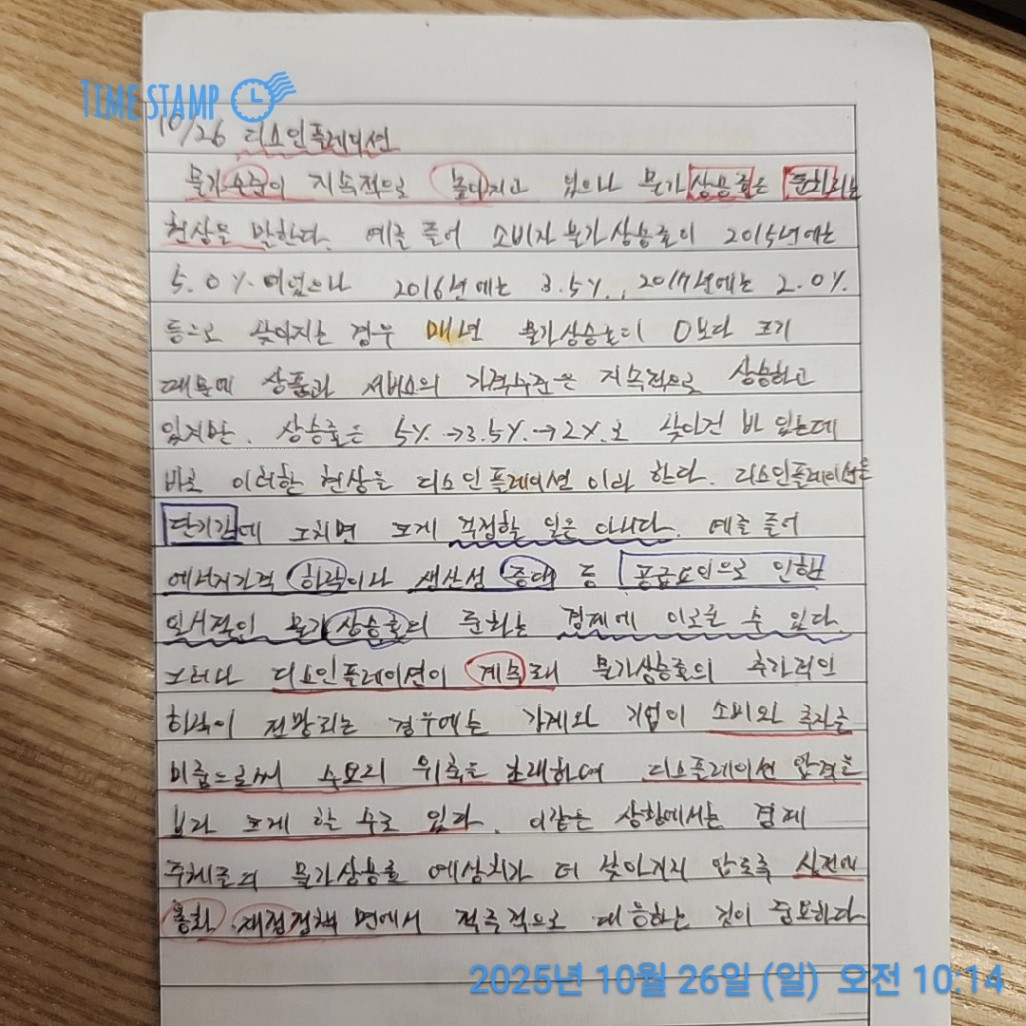 TIME STAMP
10/26 디스인플레이션
물가수준이 지속적으로 높아지고 있으나 물가 상승률은 둔화되는
현상을 말한다. 예를 들어 소비자 물가 상승률이 2015년에는
5.0%이었으나 2016년에는 3.5%, 2017년에는 2.0%
등으로 낮아지는 경우 매년 물가상승률이 0보다 크기
때문에 상품과 서비스의 가격수준은 지속적으로 상승하고
있지만, 상승률은 5%→3.5%→2%로 낮아진 바 있는데
바로 이러한 현상을 디스인플레이션이라 한다. 디스인플레이션은
단기간에 그치면 크게 걱정할 일은 아니다. 예를 들어
에너지가격 하락이나 생산성 증대 등 공급요인으로 인한
일시적인 물가상승률의 둔화는 경제에 이로울 수 있다.
그러나 디스인플레이션이 계속돼 물가상승률의 추가적인
하락이 전망되는 경우에는 가계와 기업이 소비와 투자를
미룸으로써 수요의 위축을 초래하여 디스플레이션 압력을
보다 크게 할 수도 있다. 이같은 상황에서는 경제
주체들의 물가상승률 예상치가 더 낮아지지 않도록 사전에
통화 재정정책 면에서 적극적으로 대응하는 것이 중요하다
2025년 10월 26일 (일) 오전 10:14